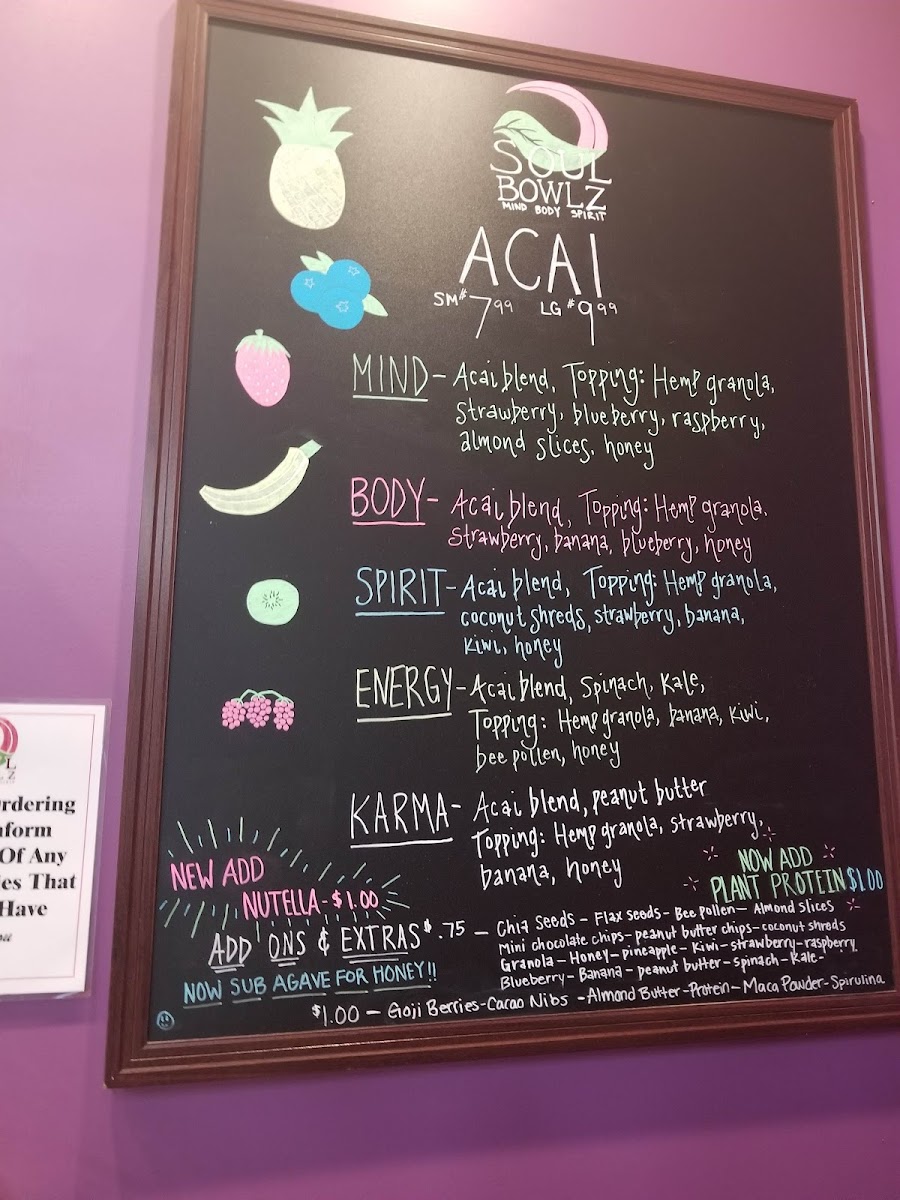 SOUL
BOWLZ
MIND BODY SPIRIT
ACAI
SM $7.99 LG $9.99
MIND - Acai blend, Topping: Hemp granola,
strawberry, blueberry, raspberry,
almond slices, honey
BODY - Acai blend, Topping: Hemp granola.
strawberry, banana, blueberry, honey
SPIRIT - Acai blend, Topping: Hemp granola,
coconut shreds, strawberry, banana,
kiwi, honey
ENERGY - Acai blend, Spinach, Kale,
Topping: Hemp granola, banana, kiwi,
bee pollen, honey
KARMA - Acai blend, peanut butter
Topping: Hemp granola, strawberry,
banana, honey
NEW ADD
NUTELLA - $1.00
NOW ADD
PLANT PROTEIN $1.00
ADD ONS & EXTRAS $.75 - Chia Seeds - Flax seeds - Bee Pollen - Almond slices
Mini chocolate chips - peanut butter chips - coconut shreds
Granola - Honey - pineapple - Kiwi - strawberry - raspberry
Blueberry - Banana - peanut butter - spinach - Kale -
NOW SUB AGAVE FOR HONEY!!
$1.00 - Goji Berries - Cacao Nibs - Almond Butter - Protein - Maca Powder - Spirulina
L
Z
rdering
nform
Of Any
ies That
Have